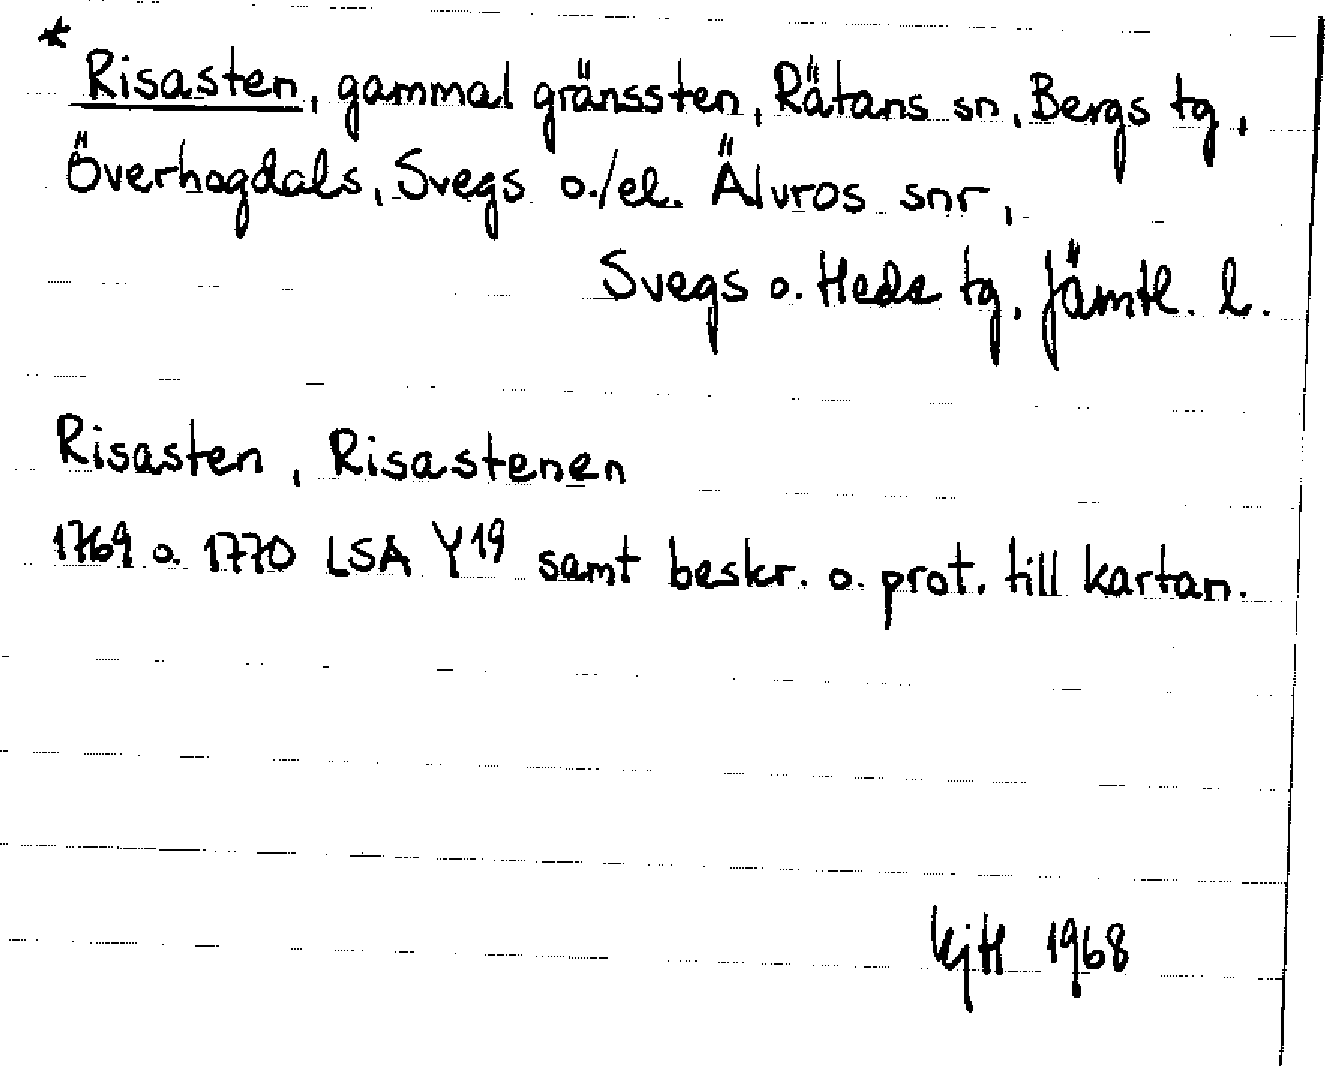 * Risasten, gammal gränssten, Rätans sn, Bergs tg,
Överhogdals, Svegs o./el. Älvros snr,
Svegs o. Heds tg, Jämtl. l.
Risasten, Risastenen
1769 o. 1770 LSA Y19 samt beskr. o. prot. till kartan.
KjH 1968